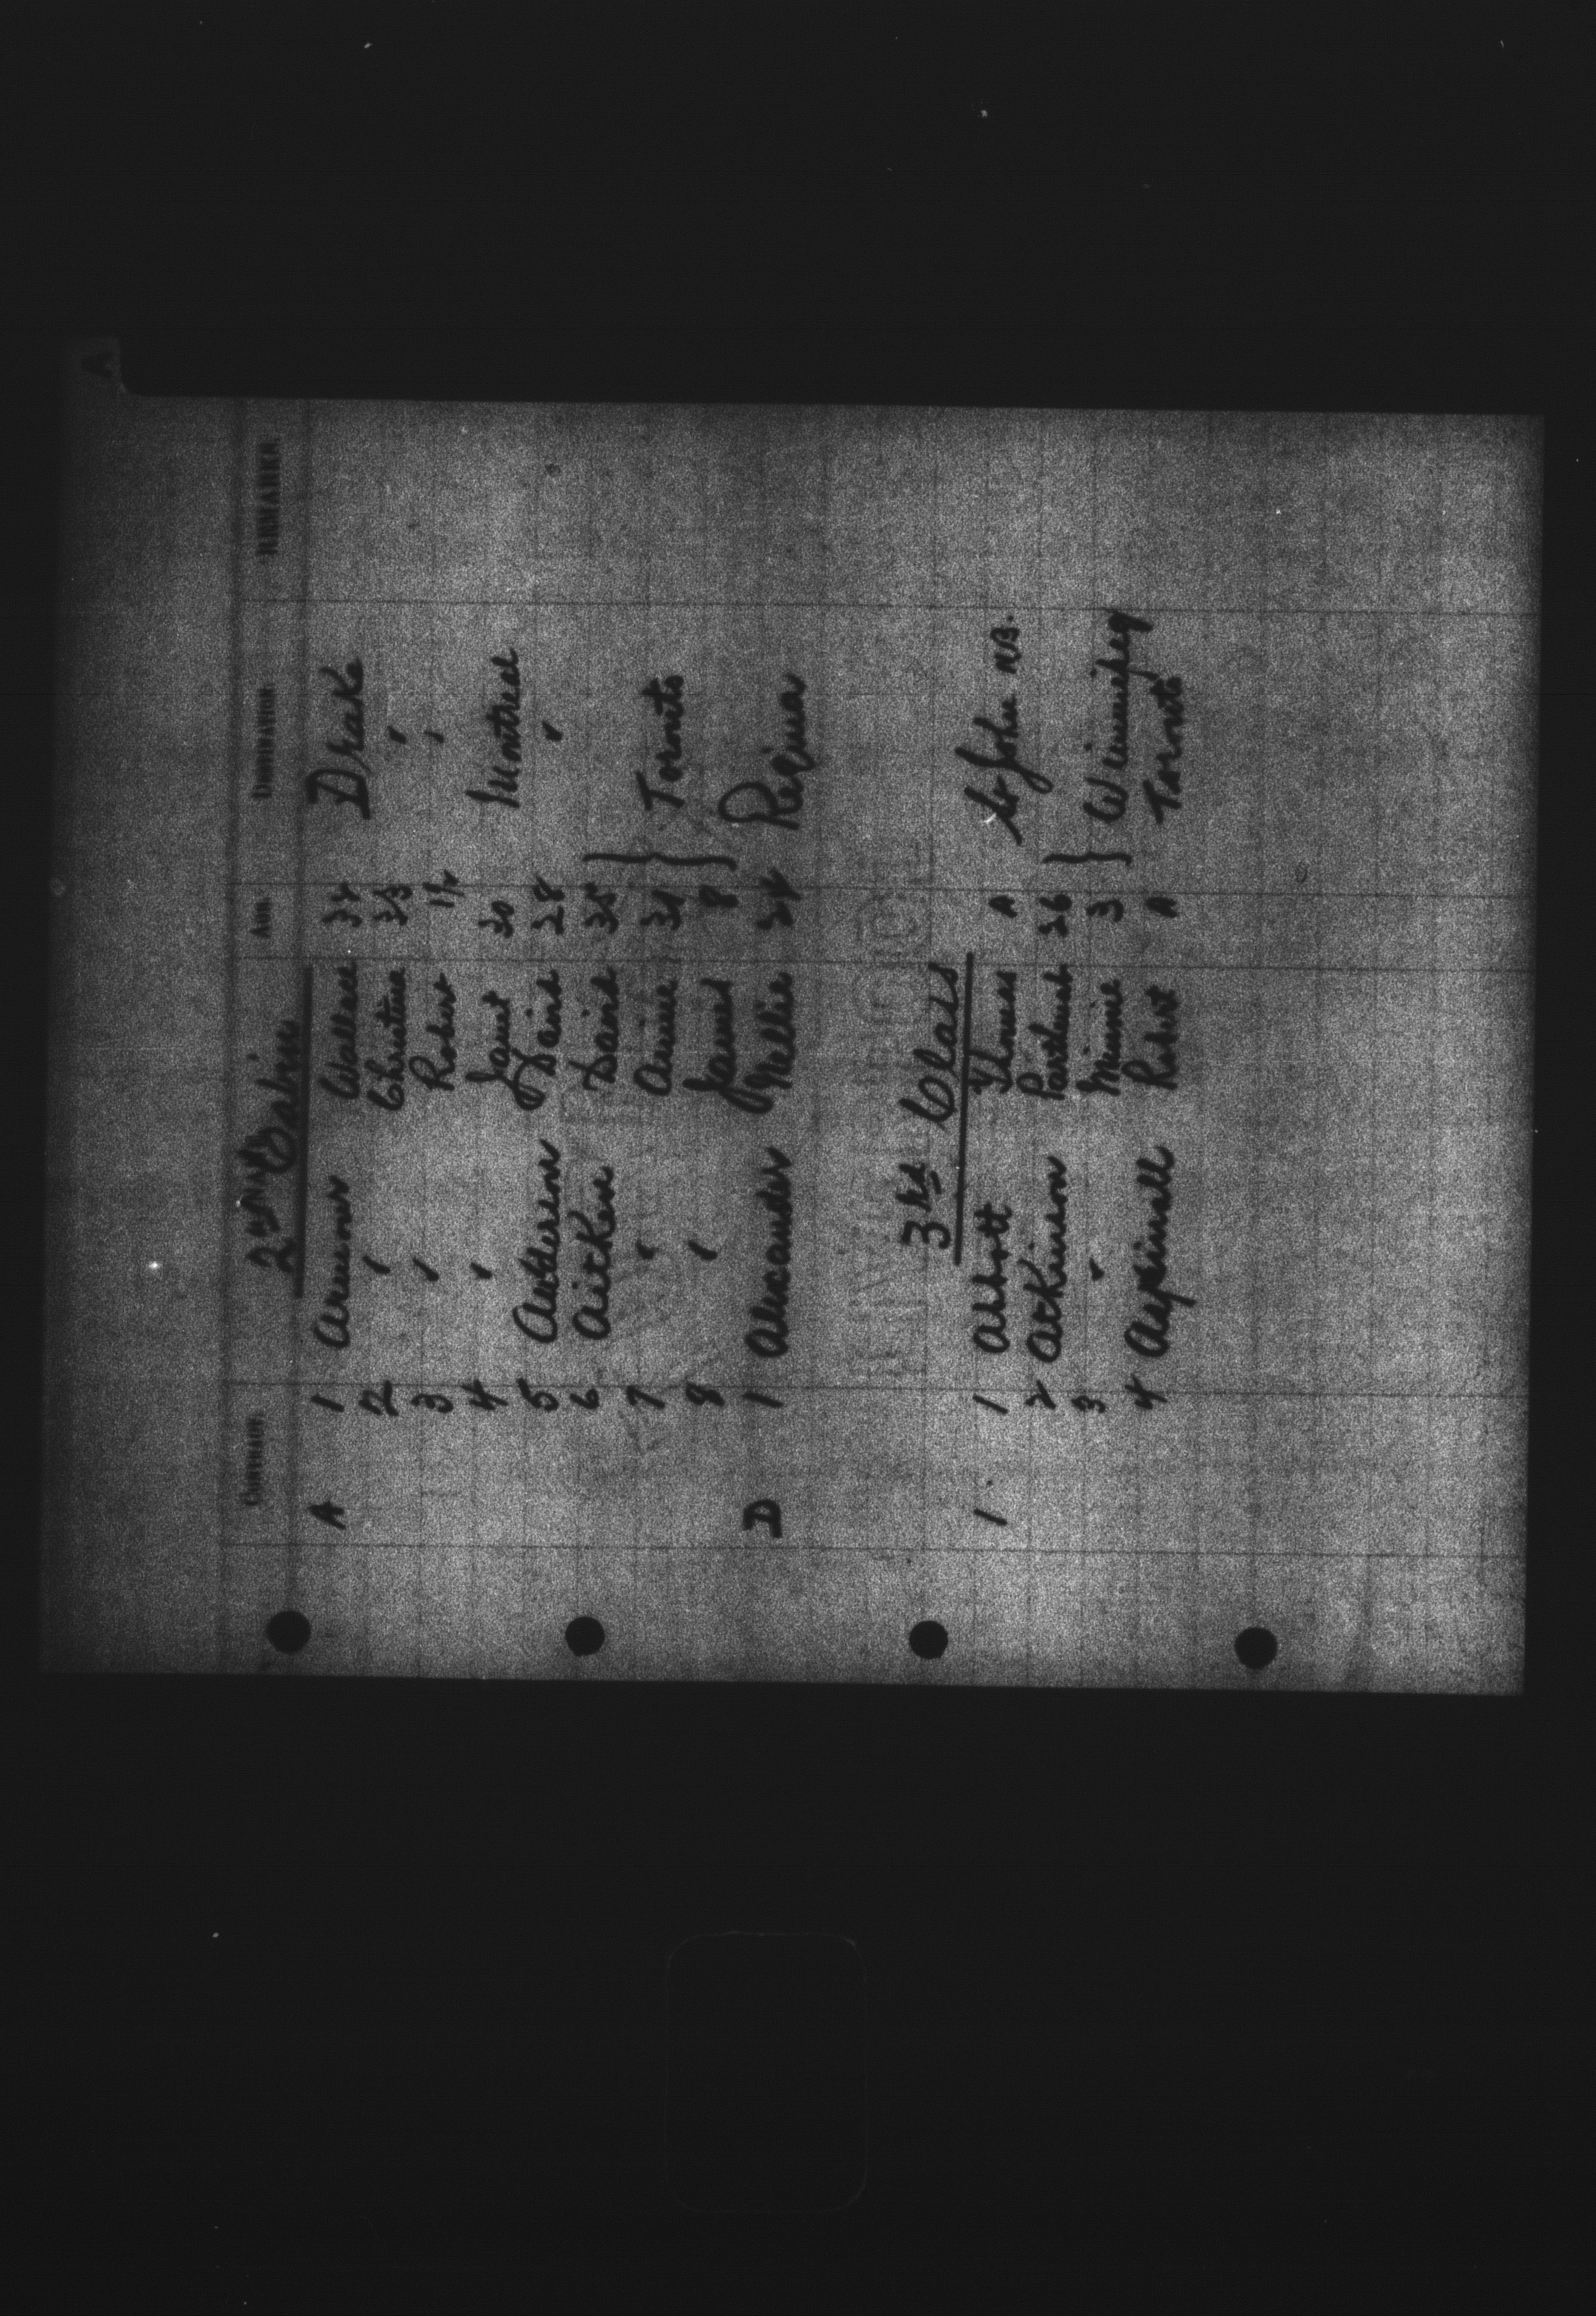 A
Destination Age Remarks
2nd Cabin
A 1 Wallace 32 Drake
2 " Christina 33 "
3 " Robert 1½ "
4 " Janet 30 Montreal
5 Anderson David 28 "
6 Aitken David 35
7 " Annie 31 Toronto
8 " James 8
D 1 Alexander Nellie 24 Regina
3rd Class
1 1 Abbott Thomas A St John N.B.
2 Atkinson 26
3 " Minnie 3 Winnipeg
4 Aspinall Robert A Toronto